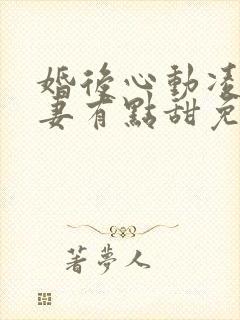 婚後心動凌
妻有點甜免
著夢人